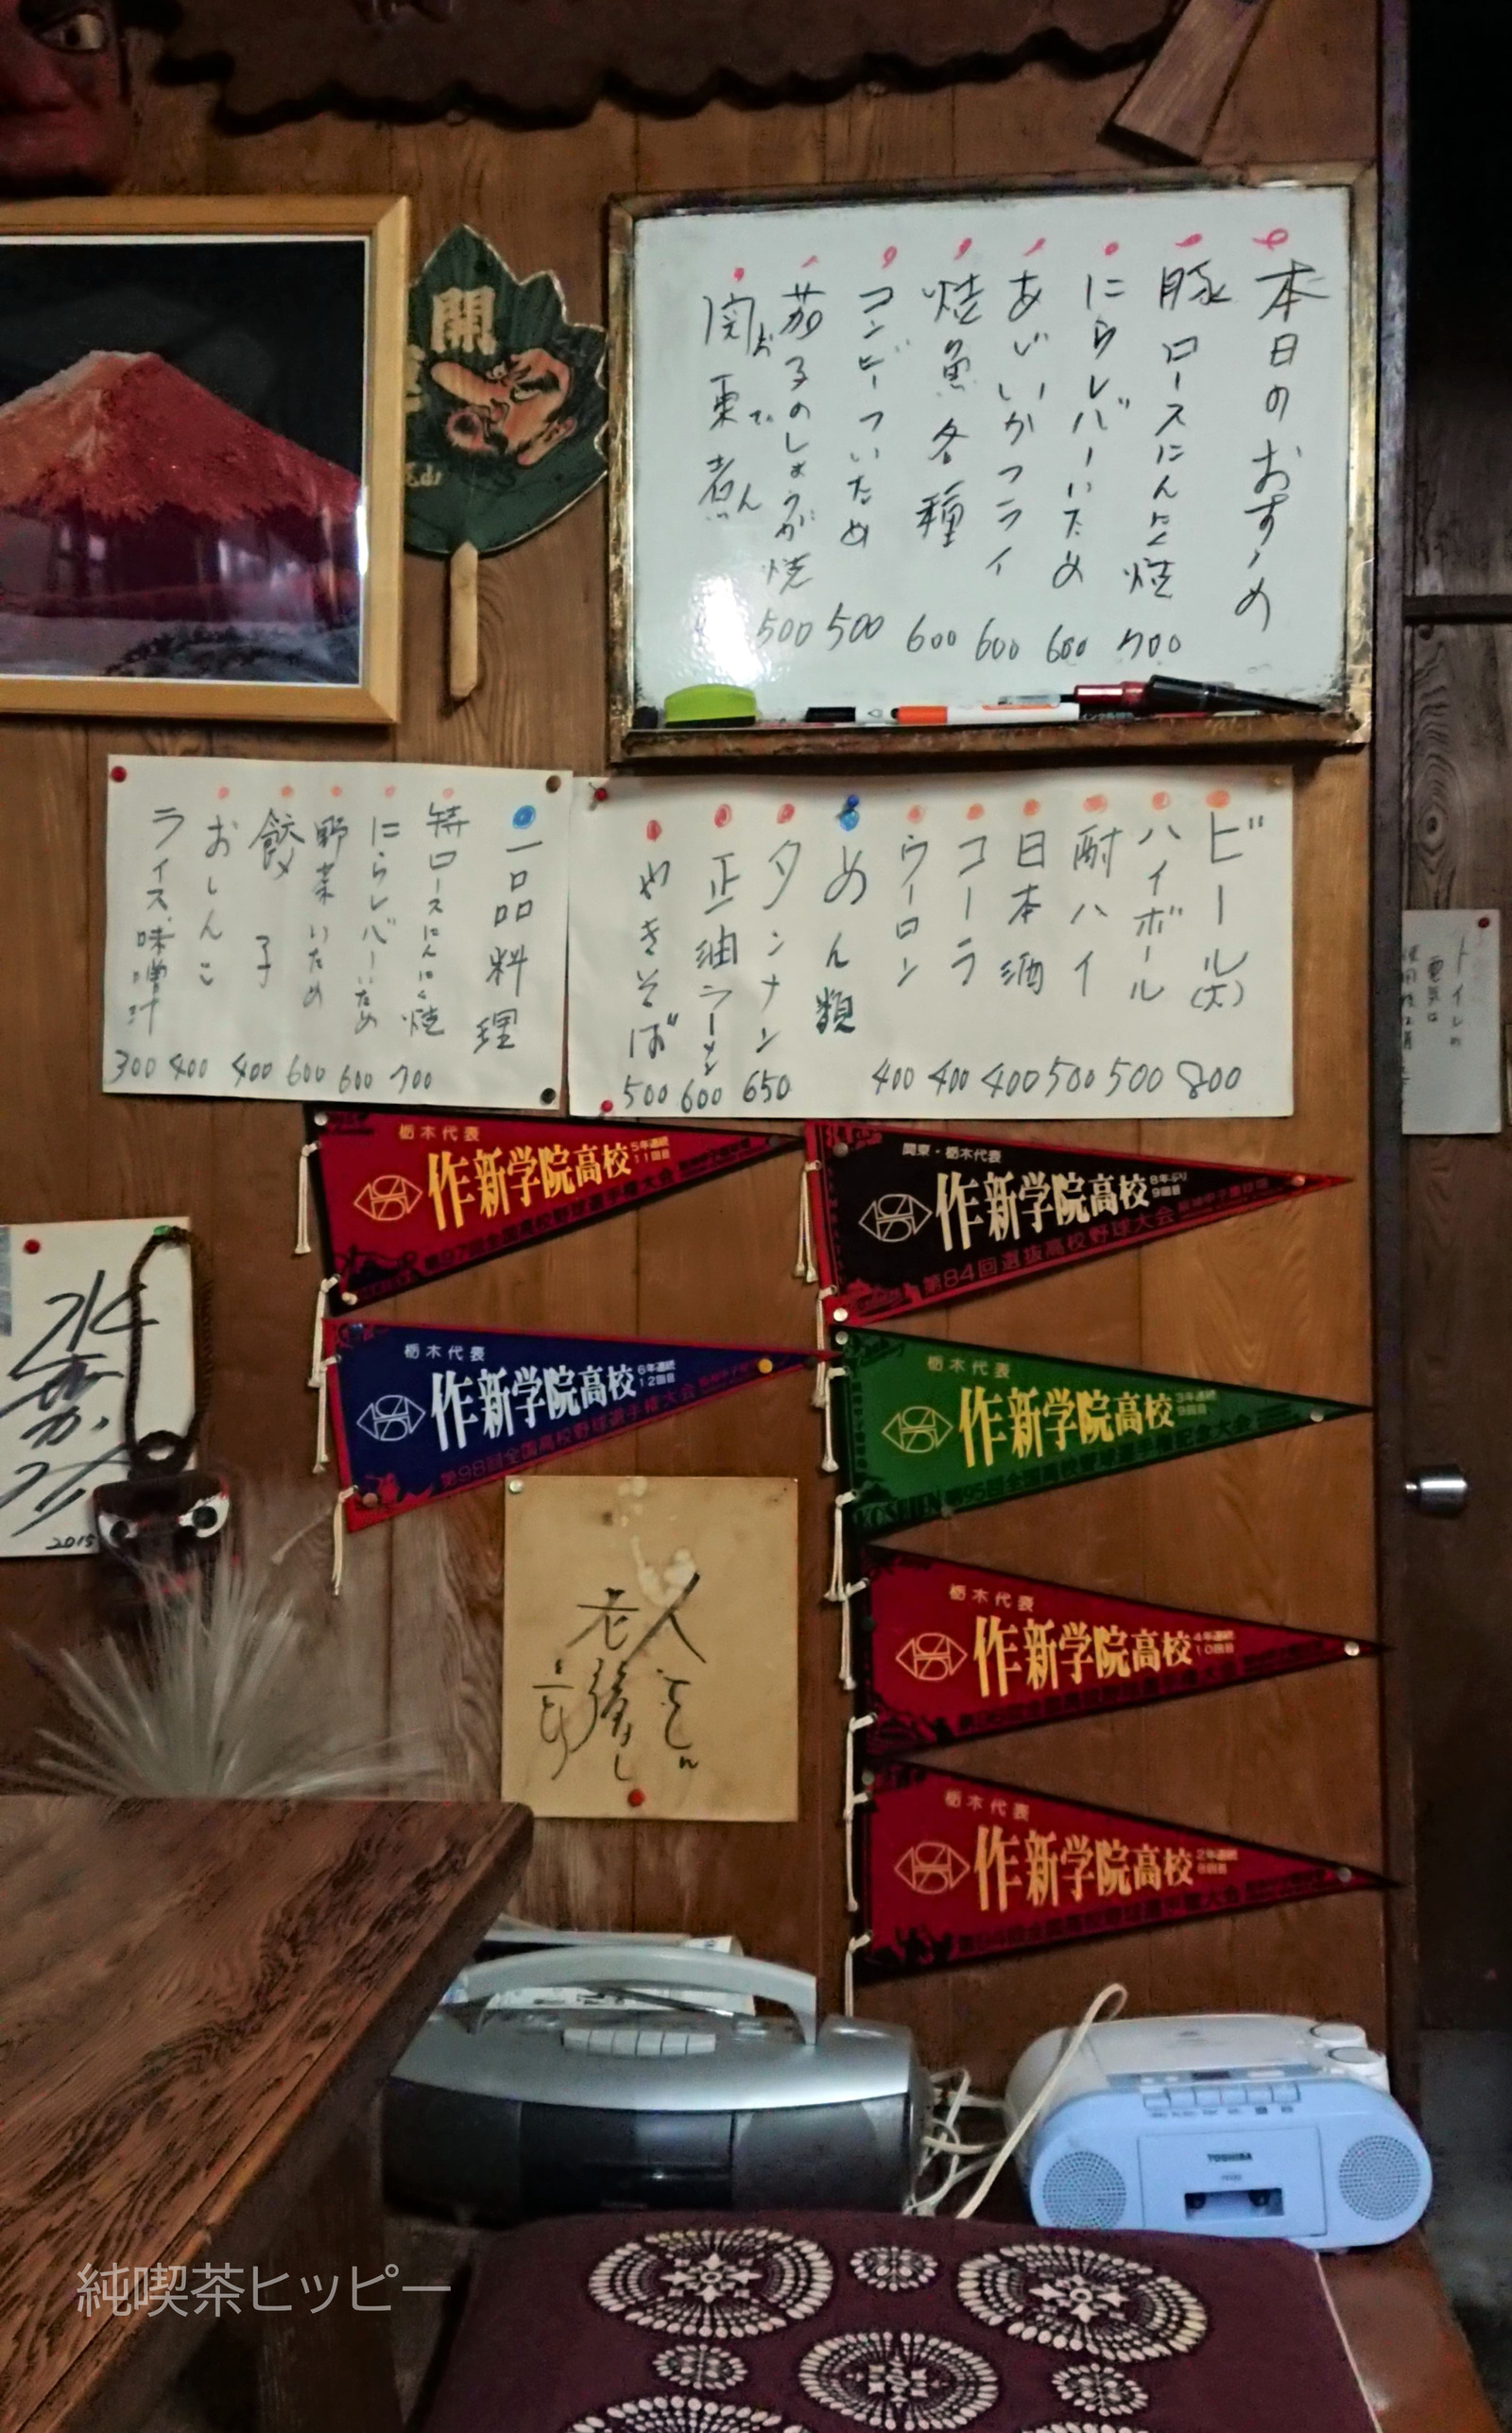 本日のおすゝめ
豚ロースにんにく焼 700
にらレバーいため 600
あじ、いかフライ 600
焼魚各種 600
コンビーフいため 500
茄子のしょうが焼 500
関東煮
おでん
開
ビール(大) 800
ハイボール 500
酎ハイ 500
日本酒 400
コーラ 400
ウーロン 400
めん類
タンナン 650
正油ラーメン 600
やきそば 500
一品料理
特ロースにんにく焼 700
にらレバーいため 600
野菜いため 600
餃子 400
おしんこ 400
ライス、味噌汁 300
トイレの
電気は
栃木代表
作新学院高校
5年連続
11回目
第97回全国高校野球選手権大会
関東・栃木代表
作新学院高校
8年ぶり
9回目
第84回選抜高校野球大会
栃木代表
作新学院高校
6年連続
12回目
第98回全国高校野球選手権大会
栃木代表
作新学院高校
3年連続
9回目
第95回全国高校野球選手権記念大会
KOSHIEN
栃木代表
作新学院高校
4年連続
10回目
栃木代表
作新学院高校
2年連続
8回目
第94回全国高校野球選手権大会
2015
TOSHIBA
純喫茶ヒッピー